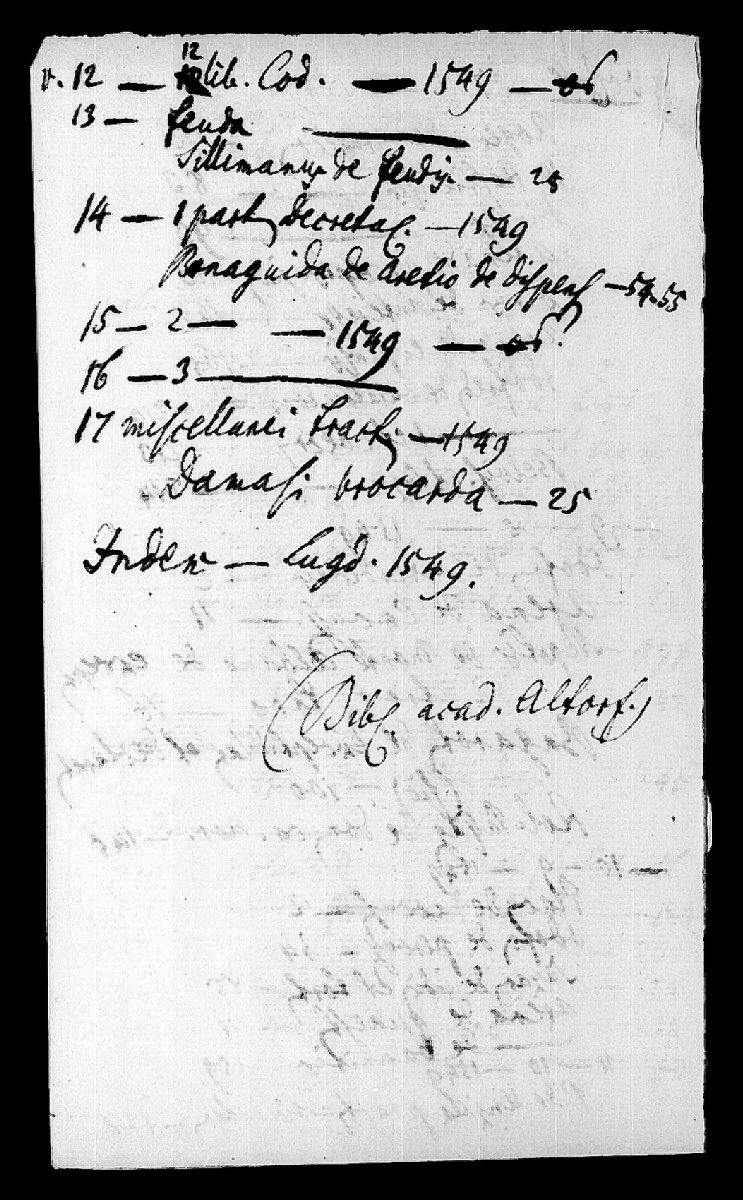 v. 12 — 12 lib. Cod. — 1549 —
13 — feuda —
Sillimanus de feudis — 25
14 — 1 part. decretal. — 1549
Bonaguida de Aretio de dispens. — 54-55
15 — 2 — — 1549 —
16 — 3 —
17 miscellanei tract. — 1549
Damasi brocarda — 25
Index — Lugd. 1549.
(Bibl. acad. Altorf.)